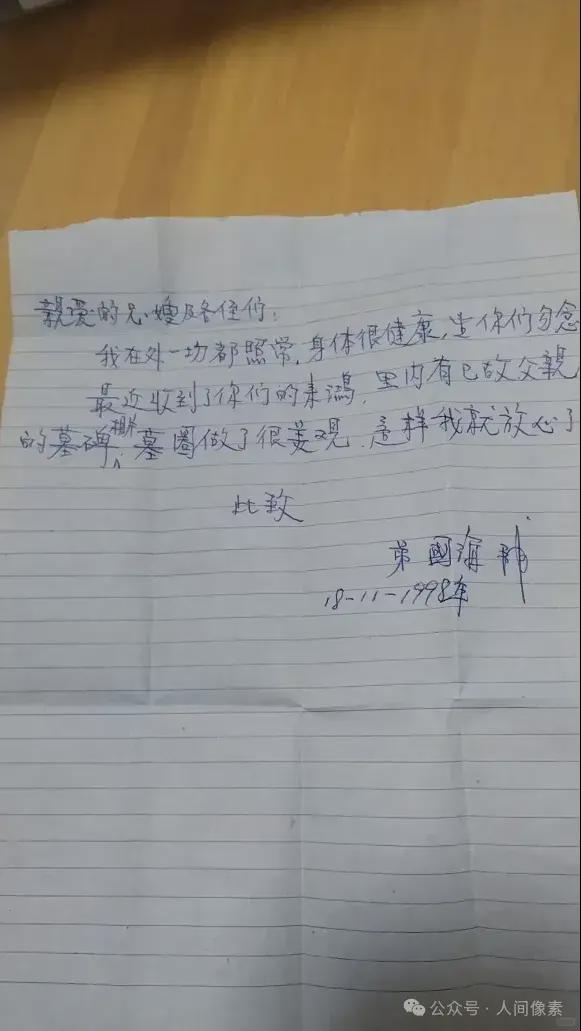 親爱的兄.嫂及各侄们:
我在外一切都照常,身体很健康,望你们勿念
最近收到了你们的来鴻,里内有已故父親
的墓碑.墓圈做了很美观.這样我就放心了
此致
弟 國海
18-11-1998年
公众号·人间像素